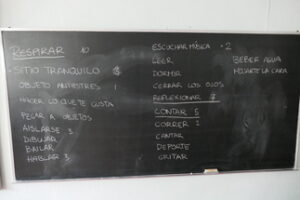 RESPIRAR 10
SITIO TRANQUILO 8
OBJETO ANTIESTRES 1
HACER LO QUE TE GUSTA
PEGAR A OBJETOS
AISLARSE 3
DIBUJAR
BAILAR
HABLAR 3
ESCUCHAR MÚSICA 2
LEER
DORMIR
CERRAR LOS OJOS
REFLEXIONAR 7
CONTAR 5
CORRER 2
CANTAR
DEPORTE
GRITAR
BEBER AGUA
MOJARTE LA CARA